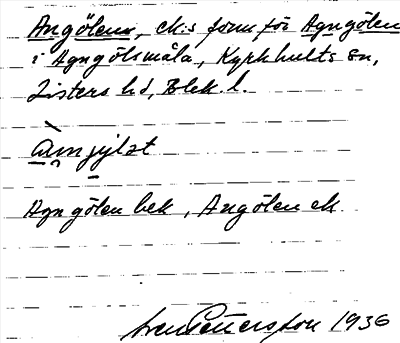 Angölen, ek:s form för Agngölen
i Agngölsmåla, Kyrkhults sn,
Listers hd, Blek. l.
Agngölen bek, Angölen ek.
Pettersson 1936